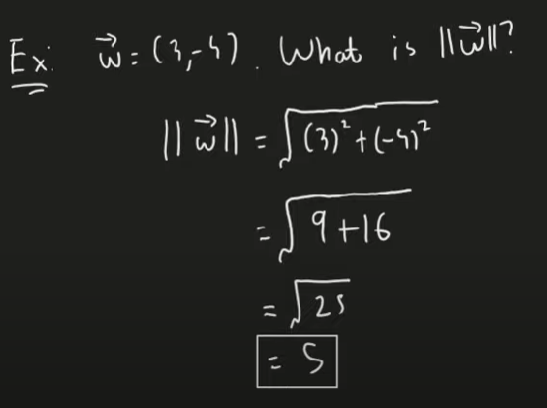 Ex: w⃗ = (3,-4). What is ||w⃗||?
||w⃗|| = √((3)² + (-4)²)
= √(9+16)
= √25
= 5